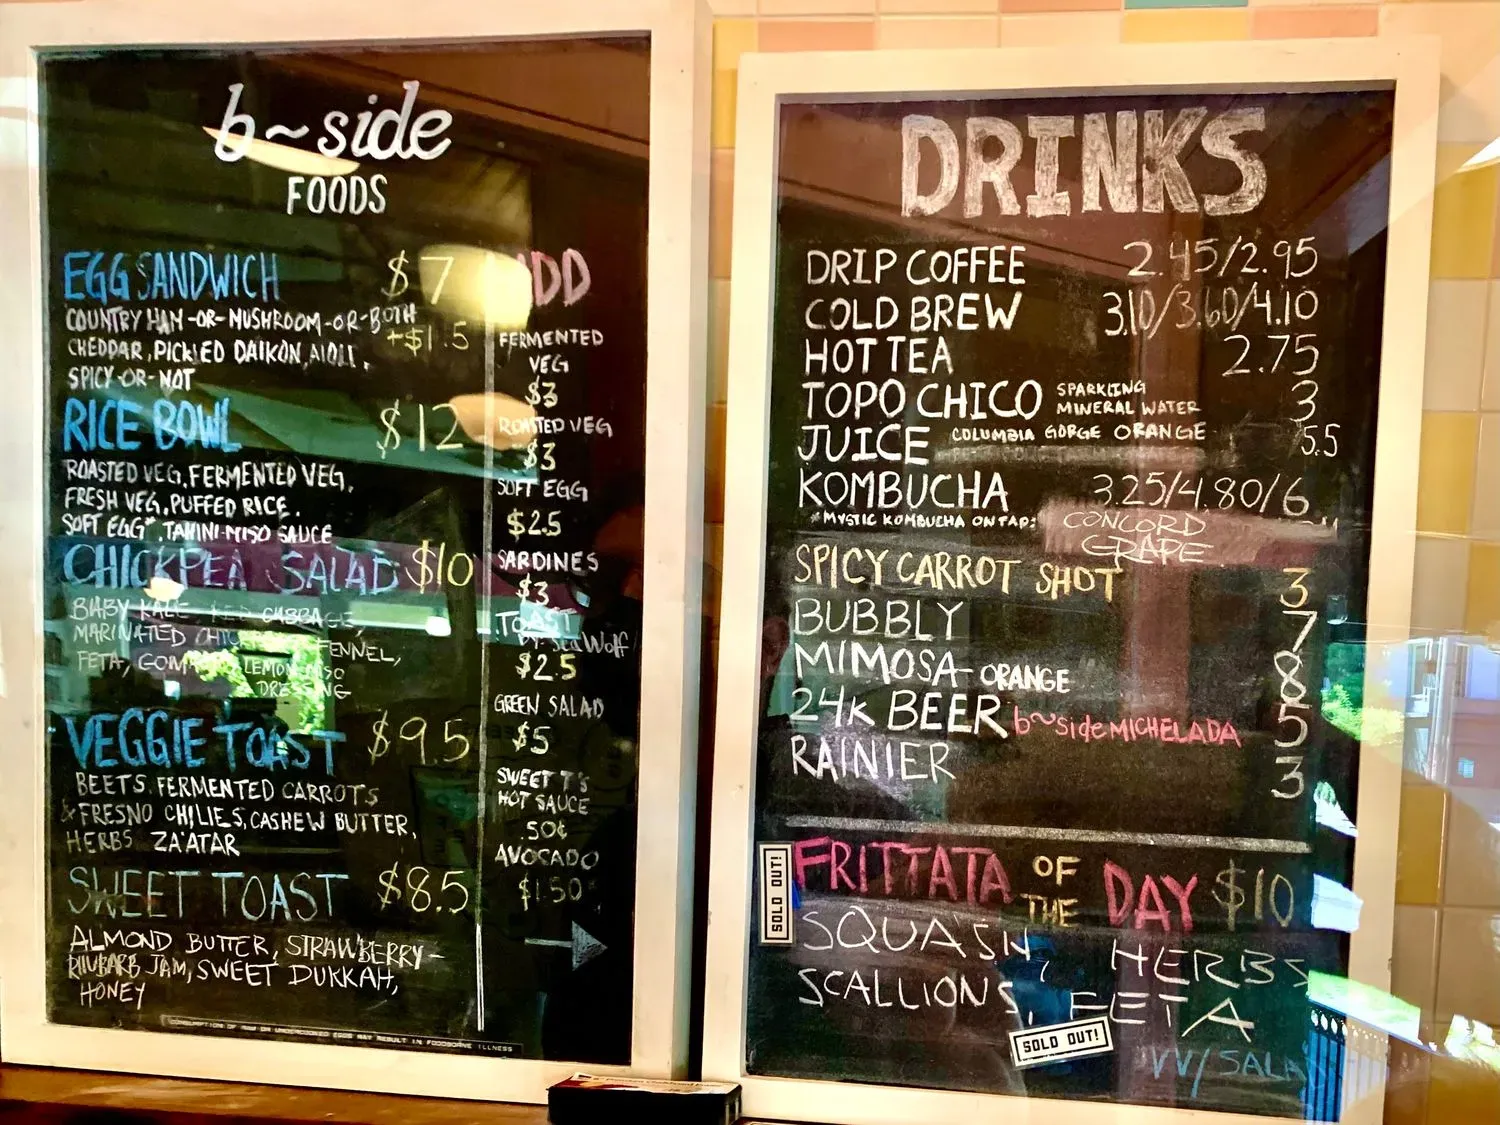 b~side
FOODS
EGG SANDWICH $7
COUNTRY HAM -OR- MUSHROOM -OR- BOTH
+$1.5
CHEDDAR, PICKLED DAIKON, AIOLI,
SPICY-OR-NOT
RICE BOWL $12
ROASTED VEG, FERMENTED VEG,
FRESH VEG, PUFFED RICE,
SOFT EGG*, TAHINI-MISO SAUCE
CHICKPEA SALAD $10
BABY KALE, RED CABBAGE,
MARINATED FENNEL,
FETA, LEMON-MISO
DRESSING
VEGGIE TOAST $9.5
BEETS, FERMENTED CARROTS
& FRESNO CHILIES, CASHEW BUTTER,
HERBS ZA'ATAR
SWEET TOAST $8.5
ALMOND BUTTER, STRAWBERRY-
RHUBARB JAM, SWEET DUKKAH,
HONEY
CONSUMPTION OF RAW OR UNDERCOOKED EGGS MAY RESULT IN FOODBORNE ILLNESS
ADD
FERMENTED
VEG
$3
ROASTED VEG
$3
SOFT EGG
$2.5
SARDINES
$3
TOAST
by Sea Wolf
$2.5
GREEN SALAD
$5
SWEET T'S
HOT SAUCE
.50¢
AVOCADO
$1.50
DRINKS
DRIP COFFEE 2.45/2.95
COLD BREW 3.10/3.60/4.10
HOT TEA 2.75
TOPO CHICO SPARKLING MINERAL WATER 3
JUICE COLUMBIA GORGE ORANGE 5.5
KOMBUCHA 3.25/4.80/6
*MYSTIC KOMBUCHA ON TAP: CONCORD
GRAPE
SPICY CARROT SHOT 3
BUBBLY 7
MIMOSA - ORANGE 8
24K BEER b~side MICHELADA 5
RAINIER 3
SOLD OUT!
FRITTATA OF THE DAY $10
SQUASH, HERBS
SCALLIONS, FETA
SOLD OUT!
W/ SALAD